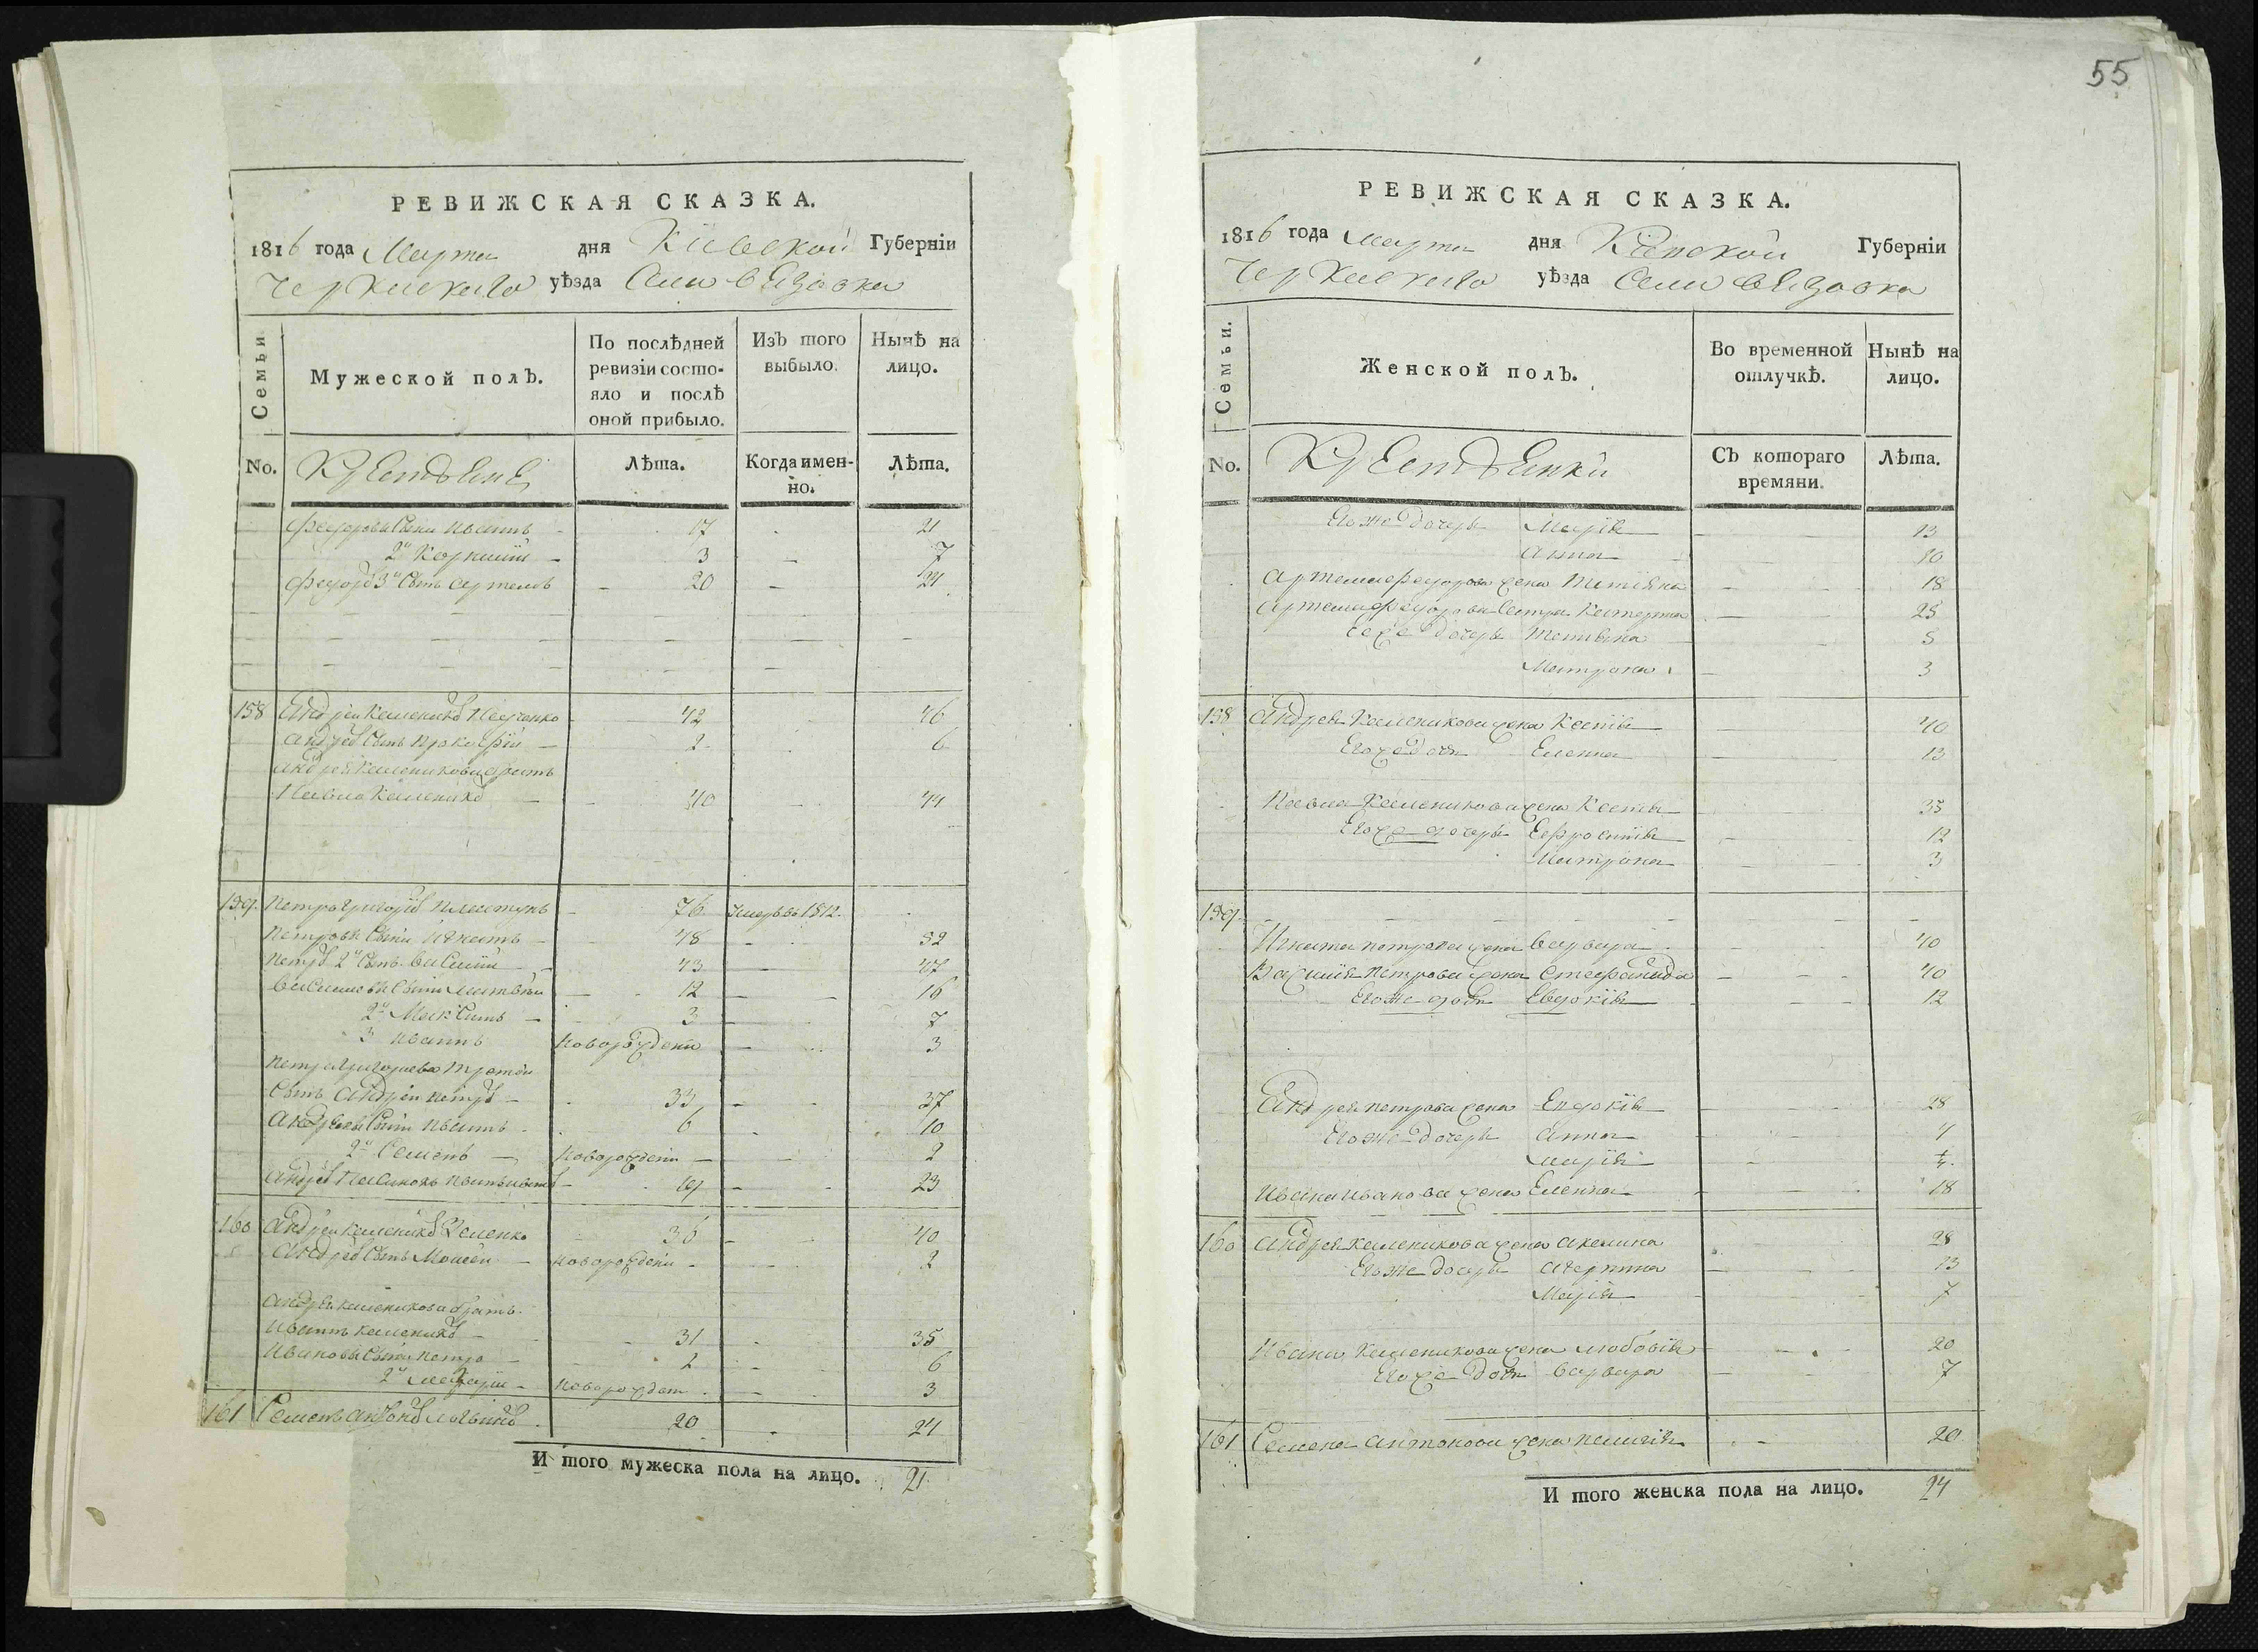 55
РЕВИЖСКАЯ СКАЗКА.
1816 года Марта дня Кіевской Губерніи
Черкаскаго уѣзда Села Вязовка
Семьи
Мужеской полъ.
По послѣдней ревизіи состояло и послѣ оной прибыло.
Изъ того выбыло.
Нынѣ на лицо.
No.
Лѣта.
Когда именно.
Лѣта.
Федорови Сыни Иванъ - 17 21
2й 3 7
Федоровъ 3й Сынъ Артемъ - 20 - 24
158 Андрей Калениковъ 42 46
Андреевъ Сынъ Прокофій - 2 6
Андрея Каленикова братъ
Павло Калениковъ - 40 44
159 Петро Григорьевъ 76 Умеръ въ 1812.
Петрови Сыни Игнатъ - 48 - 52
Петровъ 2й Сынъ Василій 43 - 47
Василиеви Сыни Матвѣй - 12 - 16
2й Максимъ - 3 7
3 Иванъ Новорожденъ - 3
Петра Григориева третій
Сынъ Андрей Петровъ - 33 - 37
Андрееви Сыни Иванъ 6 10
2й Семенъ - Новорожденъ - 2
Андреевъ Пасинокъ Иванъ 19 - 23
160 Андрей Калениковъ 36 - 40
Андреевъ Сынъ Моисей - Новорожденъ - 2
Андрея Каленикова братъ
Иванъ Калениковъ - 31 35
Иванови Сыни Петро - 2 6
2й Новорожденъ - 3
161 Семенъ Антоновъ 20 24
И того мужеска пола на лицо. 21.
РЕВИЖСКАЯ СКАЗКА.
1816 года Марта дня Кіевской Губерніи
Черкаскаго уѣзда Села Вязовка
Семьи.
Женской полъ.
Во временной отлучкѣ.
Нынѣ на лицо.
No.
Съ котораго времяни.
Лѣта.
Его же дочери Марія 13
Анна 10
Артема Федорова жена Татіяна 18
Артема Федорова Сестра Катерина 25
дочери Татіяна 5
Матрона 3
158 Андрея Каленикова жена Ксенія 40
Его же дочь Еленна 13
Павла Каленикова жена 35
Его же дочери Ефросинія 12
Матрона 3
159.
Игната Петрова жена Варвара 40
Василия Петрова жена Стефанида 40
Его же дочь Евдокія 12
Андрея Петрова жена Евдокія 28
Его же дочери Анна
Марія
Ивана Иванова жена Еленна 18
160 Андрея Каленикова жена Акилина 28
Его же дочери 13
Марія 7
Ивана Каленикова жена Любовія 20
Его же дочь Варвара 7
161 Семена Антонова жена Пелагія 20
И того женска пола на лицо. 24